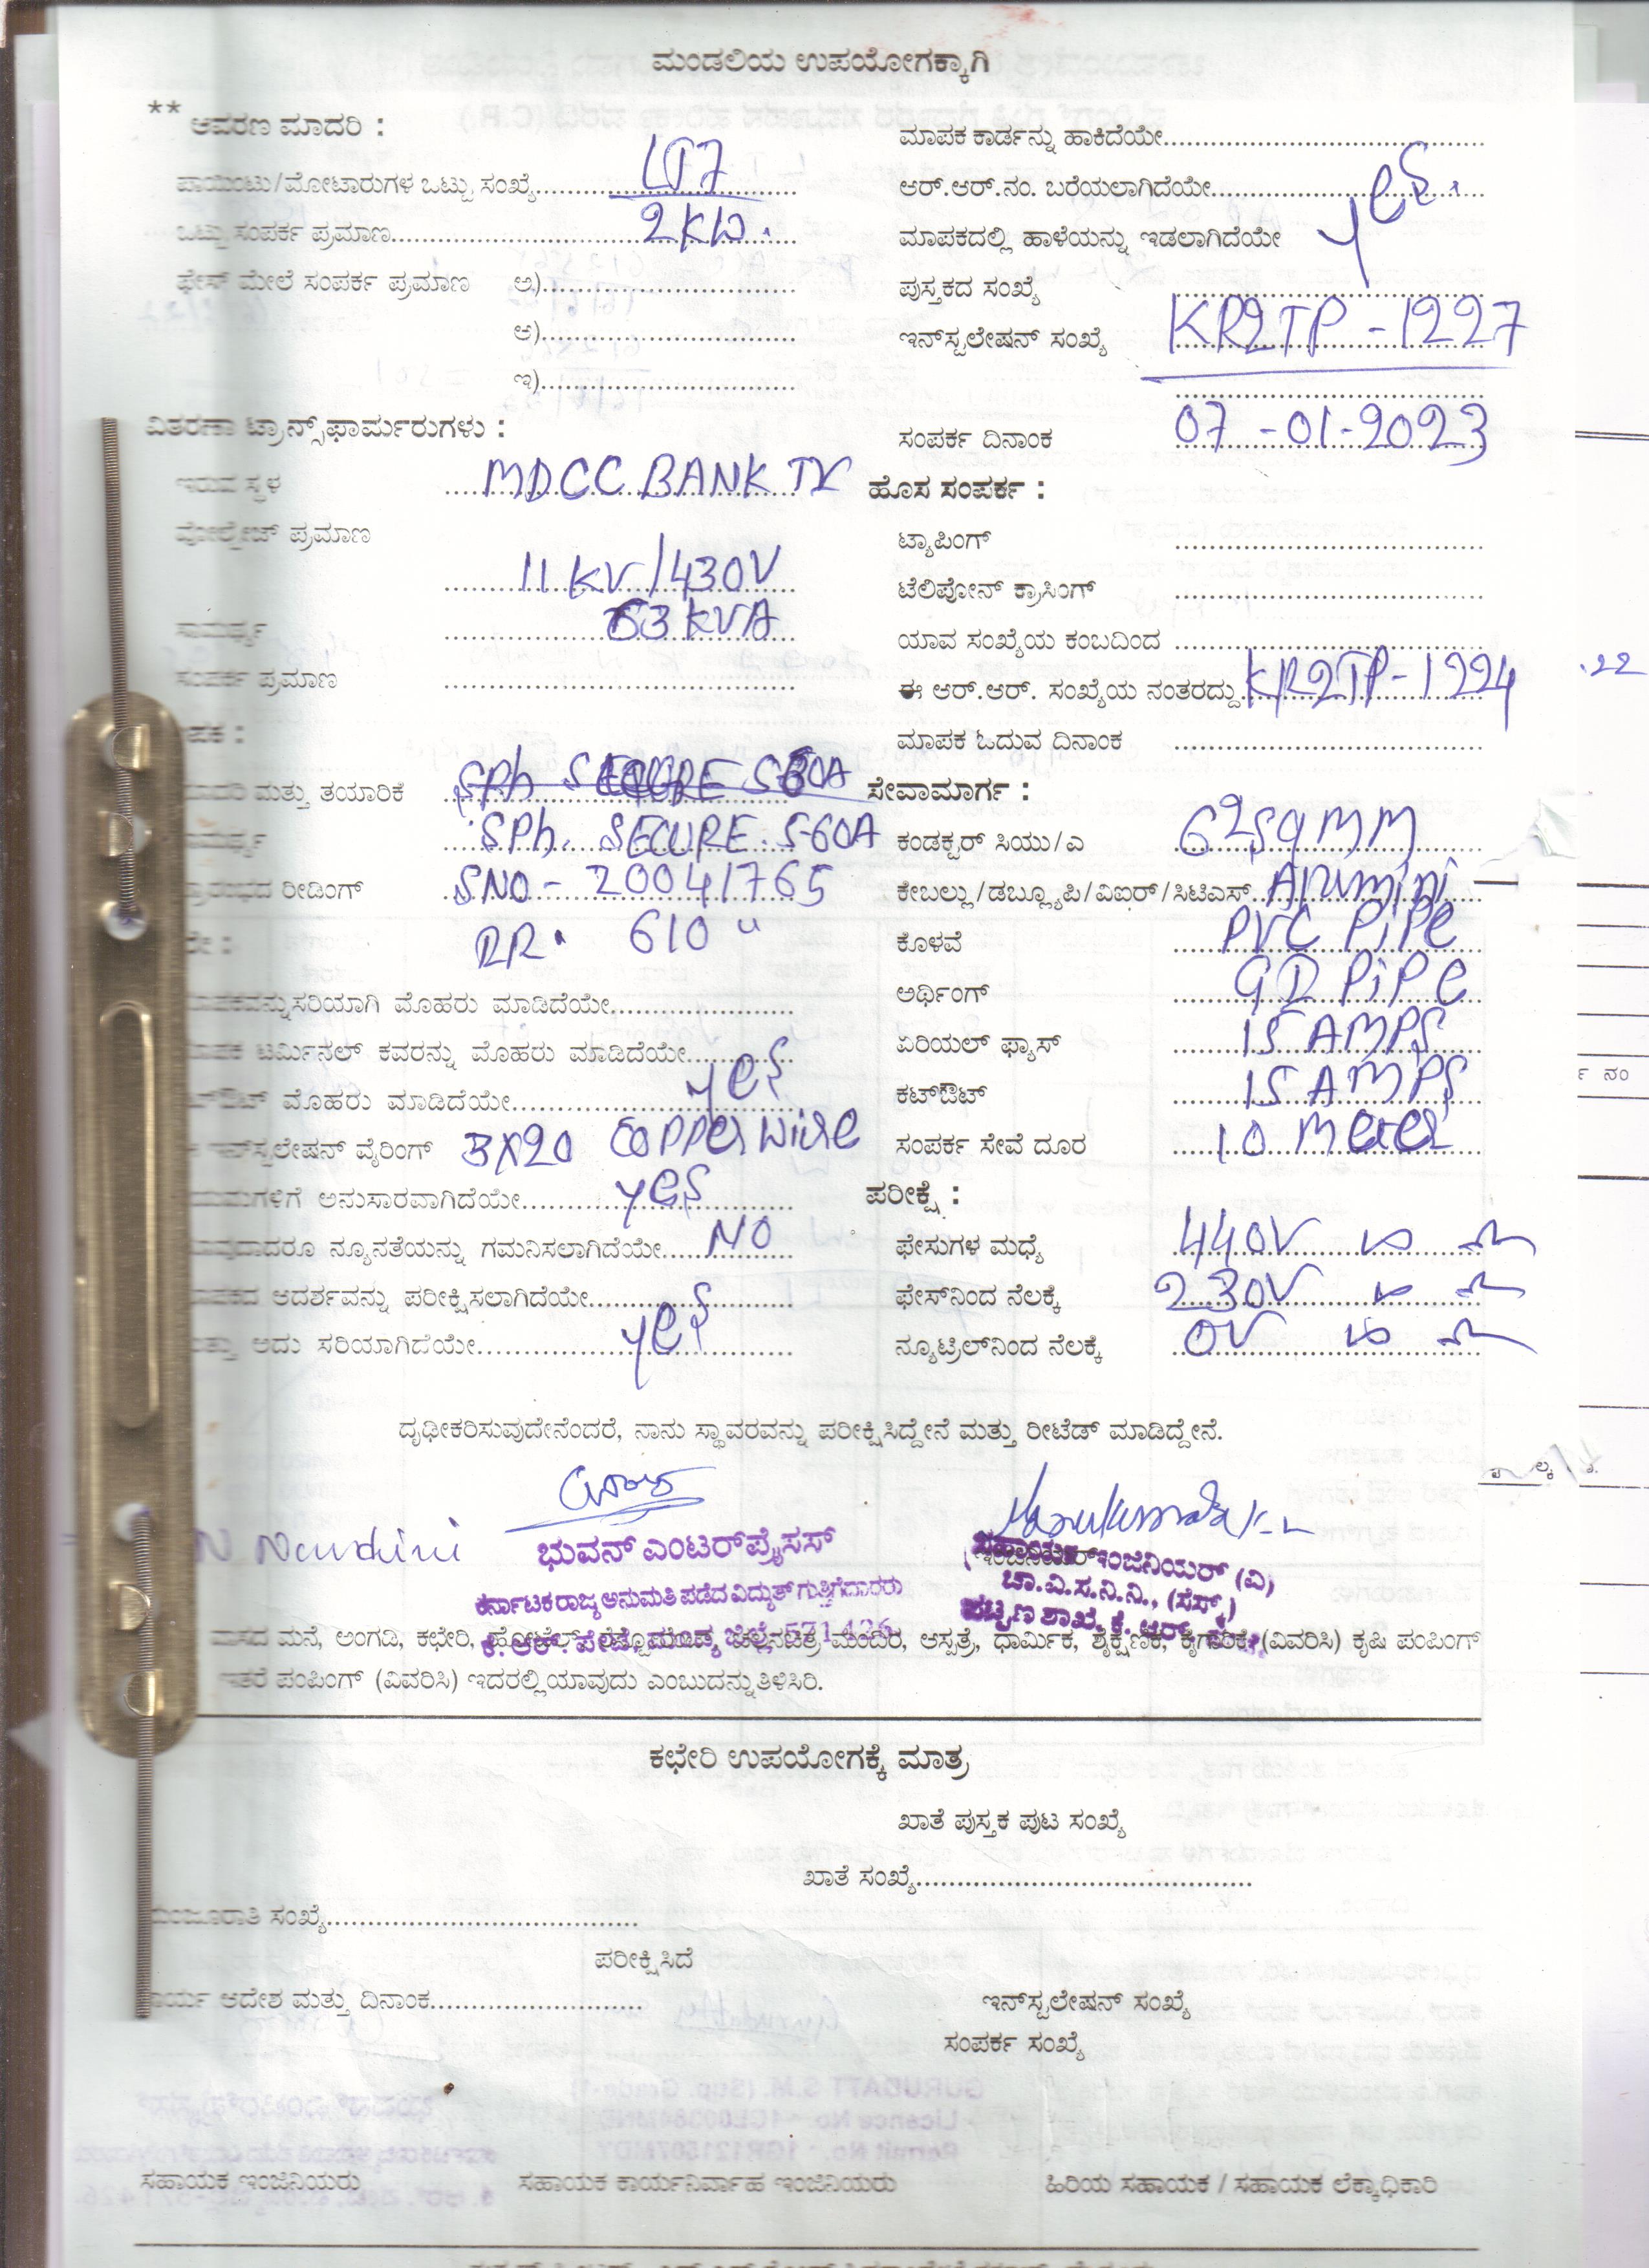 ಮಂಡಲಿಯ ಉಪಯೋಗಕ್ಕಾಗಿ
** ಆವರಣ ಮಾದರಿ :
ಪಾಯಿಂಟು/ಮೋಟಾರುಗಳ ಒಟ್ಟು ಸಂಖ್ಯೆ.......... LT7
ಒಟ್ಟು ಸಂಪರ್ಕ ಪ್ರಮಾಣ.......... 2KW.
ಫೇಸ್ ಮೇಲೆ ಸಂಪರ್ಕ ಪ್ರಮಾಣ ಅ)..........
ಆ)..........
ಇ)..........
ವಿತರಣಾ ಟ್ರಾನ್ಸ್‌ಫಾರ್ಮರುಗಳು :
ಇರುವ ಸ್ಥಳ MDCC BANK TR
ವೋಲ್ಟೇಜ್ ಪ್ರಮಾಣ 11 KV/430V
ಸಾಮರ್ಥ್ಯ 63 KVA
ಸಂಪರ್ಕ ಪ್ರಮಾಣ ..........
ಪಕ :
ಮತ್ತು ತಯಾರಿಕೆ SPh SECURE S60A
SPh. SECURE. 5-60A
ರೀಡಿಂಗ್ SNO - 20041765
RR. 610 "
ಸರಿಯಾಗಿ ಮೊಹರು ಮಾಡಿದೆಯೇ..........
ಟರ್ಮಿನಲ್ ಕವರನ್ನು ಮೊಹರು ಮಾಡಿದೆಯೇ.......... yes
ಮೊಹರು ಮಾಡಿದೆಯೇ..........
ಇನ್‌ಸ್ಟಲೇಷನ್ ವೈರಿಂಗ್ 3X20 COPPER WIRE
ಗಳಿಗೆ ಅನುಸಾರವಾಗಿದೆಯೇ.......... yes
ದಾದರೂ ನ್ಯೂನತೆಯನ್ನು ಗಮನಿಸಲಾಗಿದೆಯೇ.......... NO
ಆದರ್ಶವನ್ನು ಪರೀಕ್ಷಿಸಲಾಗಿದೆಯೇ..........
ಅದು ಸರಿಯಾಗಿದೆಯೇ.......... yes
ಮಾಪಕ ಕಾರ್ಡನ್ನು ಹಾಕಿದೆಯೇ..........
ಆರ್.ಆರ್.ನಂ. ಬರೆಯಲಾಗಿದೆಯೇ.......... yes.
ಮಾಪಕದಲ್ಲಿ ಹಾಳೆಯನ್ನು ಇಡಲಾಗಿದೆಯೇ
ಪುಸ್ತಕದ ಸಂಖ್ಯೆ ..........
ಇನ್‌ಸ್ಟಲೇಷನ್ ಸಂಖ್ಯೆ KR2TP - 1227
ಸಂಪರ್ಕ ದಿನಾಂಕ 07 - 01 - 2023
ಹೊಸ ಸಂಪರ್ಕ :
ಟ್ಯಾಪಿಂಗ್ ..........
ಟೆಲಿಪೋನ್ ಕ್ರಾಸಿಂಗ್ ..........
ಯಾವ ಸಂಖ್ಯೆಯ ಕಂಬದಿಂದ ..........
ಈ ಆರ್.ಆರ್. ಸಂಖ್ಯೆಯ ನಂತರದ್ದು KR2TP - 1224 .22
ಮಾಪಕ ಓದುವ ದಿನಾಂಕ ..........
ಸೇವಾಮಾರ್ಗ :
ಕಂಡಕ್ಟರ್ ಸಿಯು/ಎ 6 2sq MM
ಕೇಬಲ್ಲು/ಡಬ್ಲ್ಯೂಪಿ/ವಿಐರ್/ಸಿಟಿಎಸ್ Alumini
ಕೊಳವೆ PVC PiPe
ಅರ್ಥಿಂಗ್ GI PiPe
ಏರಿಯಲ್ ಫ್ಯೂಸ್ 15 AMPS
ಕಟ್‌ಔಟ್ 15 AMPS
ಸಂಪರ್ಕ ಸೇವೆ ದೂರ 10 Meter
ಪರೀಕ್ಷೆ :
ಫೇಸುಗಳ ಮಧ್ಯೆ 440V
ಫೇಸ್‌ನಿಂದ ನೆಲಕ್ಕೆ 230V
ನ್ಯೂಟ್ರಿಲ್‌ನಿಂದ ನೆಲಕ್ಕೆ 0V
ದೃಢೀಕರಿಸುವುದೇನೆಂದರೆ, ನಾನು ಸ್ಥಾವರವನ್ನು ಪರೀಕ್ಷಿಸಿದ್ದೇನೆ ಮತ್ತು ರೀಟೆಡ್ ಮಾಡಿದ್ದೇನೆ.
N Nandini
ಭುವನ್ ಎಂಟರ್‌ಪ್ರೈಸಸ್
ಕರ್ನಾಟಕ ರಾಜ್ಯ ಅನುಮತಿ ಪಡೆದ ವಿದ್ಯುತ್ ಗುತ್ತಿಗೆದಾರರು
ಕೆ. ಆರ್. ಪೇಟೆ, ಮಂಡ್ಯ ಜಿಲ್ಲೆ-571426
ಇಂಜಿನಿಯರ್ (ವಿ)
ಚಾ.ವಿ.ಸ.ನಿ.ನಿ., (ಸೆಸ್ಕ್)
ಪಟ್ಟಣ ಶಾಖೆ, ಕೆ. ಆರ್.
ವಾಸದ ಮನೆ, ಅಂಗಡಿ, ಕಛೇರಿ, ಹೋಟೆಲ್ ಮಂದಿರ, ಆಸ್ಪತ್ರೆ, ಧಾರ್ಮಿಕ, ಶೈಕ್ಷಣಿಕ, ಕೈಗಾರಿಕೆ (ವಿವರಿಸಿ) ಕೃಷಿ ಪಂಪಿಂಗ್
ಇತರೆ ಪಂಪಿಂಗ್ (ವಿವರಿಸಿ) ಇದರಲ್ಲಿ ಯಾವುದು ಎಂಬುದನ್ನು ತಿಳಿಸಿರಿ.
ಕಛೇರಿ ಉಪಯೋಗಕ್ಕೆ ಮಾತ್ರ
ಖಾತೆ ಪುಸ್ತಕ ಪುಟ ಸಂಖ್ಯೆ
ಖಾತೆ ಸಂಖ್ಯೆ..........
ಮಂಜೂರಾತಿ ಸಂಖ್ಯೆ..........
ಪರೀಕ್ಷಿಸಿದೆ
ಕಾರ್ಯ ಆದೇಶ ಮತ್ತು ದಿನಾಂಕ..........
ಇನ್‌ಸ್ಟಲೇಷನ್ ಸಂಖ್ಯೆ
ಸಂಪರ್ಕ ಸಂಖ್ಯೆ
ಸಹಾಯಕ ಇಂಜಿನಿಯರು ಸಹಾಯಕ ಕಾರ್ಯನಿರ್ವಾಹ ಇಂಜಿನಿಯರು ಹಿರಿಯ ಸಹಾಯಕ / ಸಹಾಯಕ ಲೆಕ್ಕಾಧಿಕಾರಿ